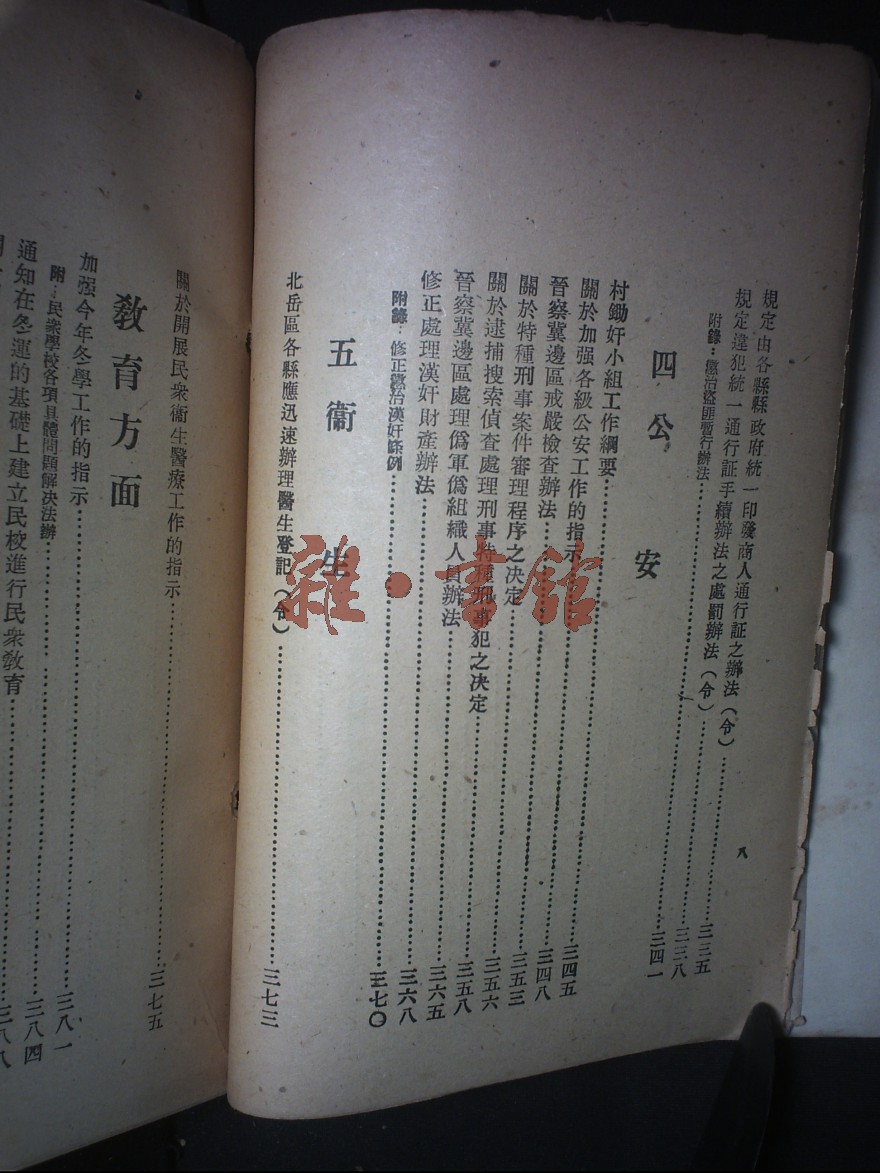 規定由各縣縣政府統一印發商人通行証之辦法（令）……三三五
規定違犯統一通行証手續辦法之處罰辦法（令）……三三八
附錄：懲治盜匪暫行辦法……三四一
四公安
村鋤奸小組工作綱要……三四五
關於加强各級公安工作的指示……三四八
晉察冀邊區戒嚴檢查辦法……三五三
關於特種刑事案件審理程序之決定……三五六
關於逮捕搜索偵查處理刑事特種刑事犯之決定……三五八
晉察冀邊區處理僞軍僞組織人員辦法……三六五
修正處理漢奸財產辦法……三六八
附錄：修正懲治漢奸條例……三七〇
五衞生
北岳區各縣應迅速辦理醫生登記（令）……三七三
八
關於開展民衆衞生醫療工作的指示……三七五
教育方面
加强今年冬學工作的指示……三八一
附：民衆學校各項具體問題解決法辦……三八四
通知在冬運的基礎上建立民校進行民衆教育……三八八
雜·書館